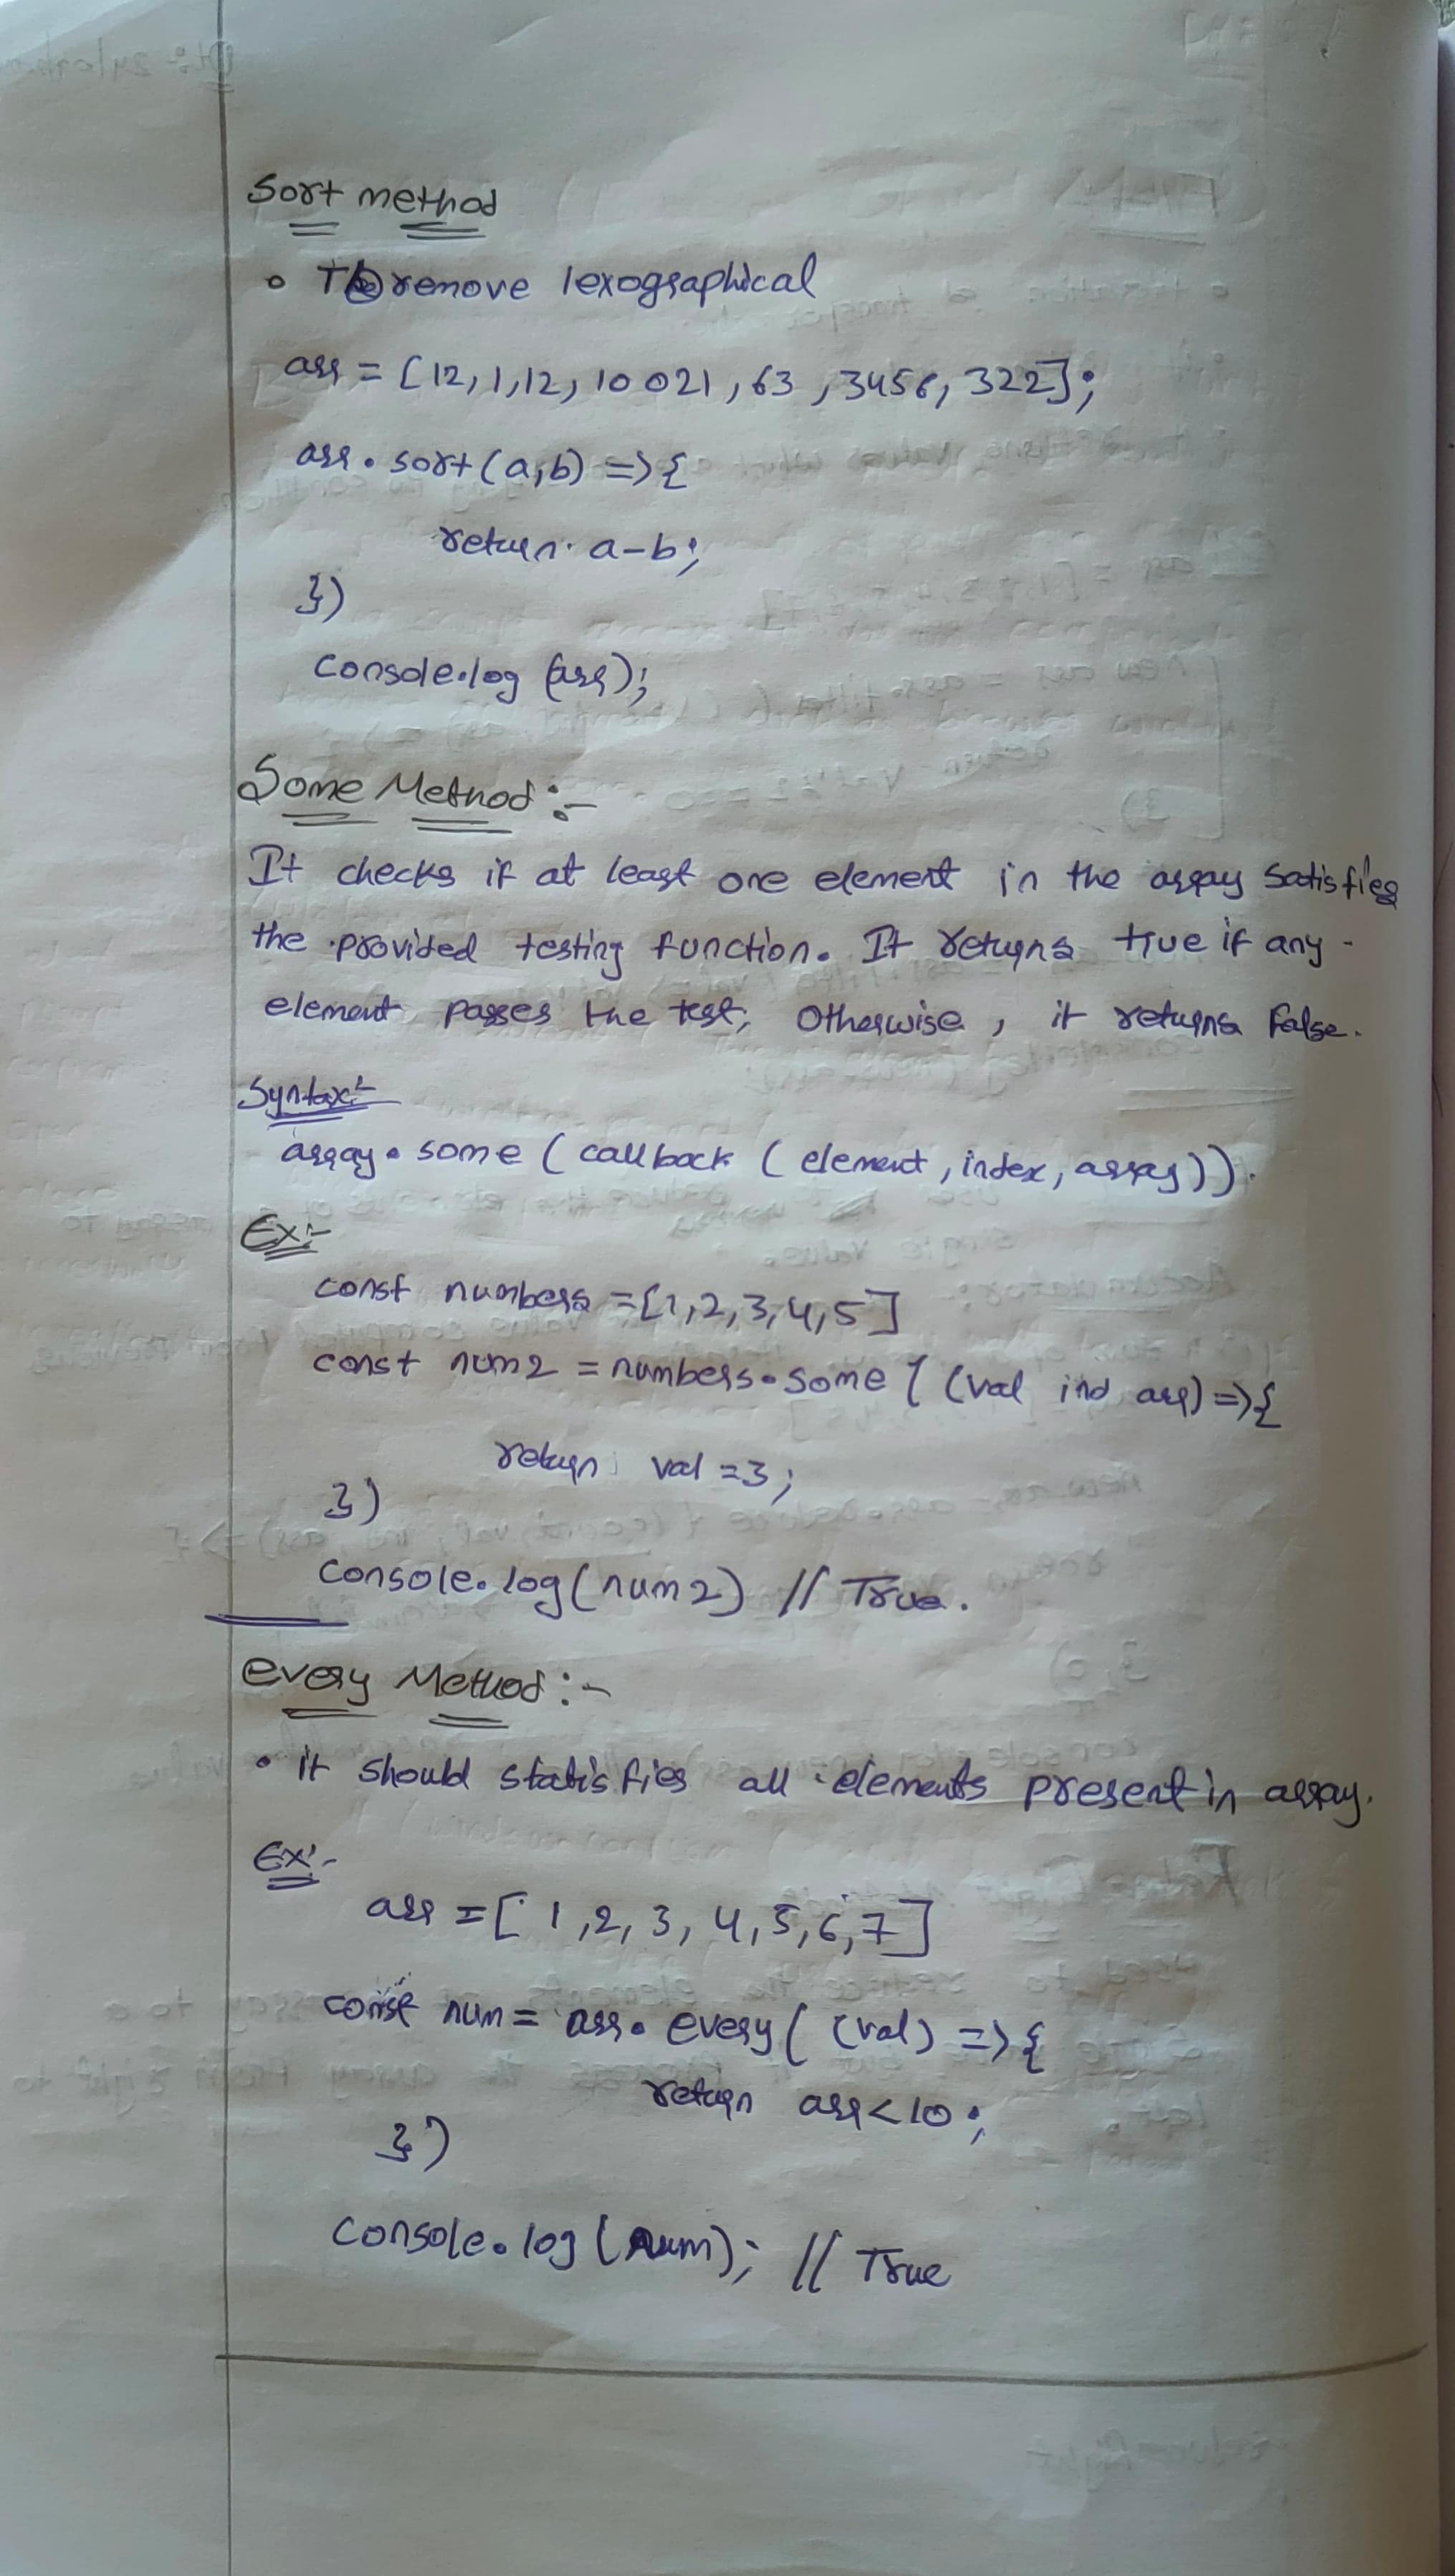 Sort method
• To remove lexographical
arr = [12,1,12, 10021, 63, 3456, 322];
arr.sort(a,b) => {
return a-b;
})
console.log (arr);
Some Method :-
It checks if at least one element in the array satisfies
the provided testing function. It returns true if any
element passes the test, Otherwise, it returns false.
Syntax:-
array.some ( callback ( element, index, array)).
Ex:-
const numbers = [1,2,3,4,5]
const num2 = numbers.some ( (val ind arr) => {
return val = 3;
})
console.log(num2) // True.
every Method :-
• it should statisfies all elements present in array.
Ex:-
arr = [ 1,2, 3, 4,5,6,7]
const num = arr.every( (val) => {
return arr<10;
})
console.log (num); // True